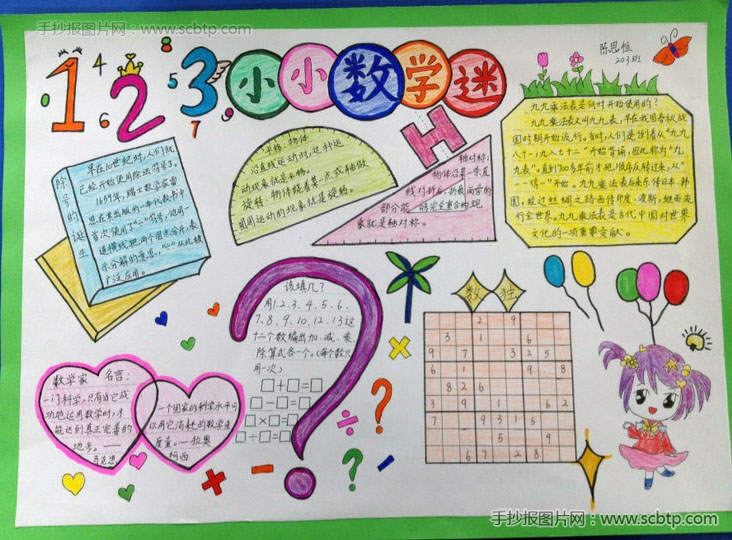 手抄报图片网：www.scbtp.com
1 2 3 小小数学迷
4
8
5
9
0
6
7
陈思恒
203班
除号的诞生
早在10世纪时，人们就
已经开始使用除法符号了。
1659年，瑞士数学家雷
恩在其出版的一本代数书中
首次使用了"÷"符号，他用一
道横线把两个圆点分开，表
示分解的意思，"÷"从此被
广泛应用。
平移：物体
沿直线运动时，这种运
动现象就是平移。
旋转：物体绕着某一点或轴做
圆周运动的现象就是旋转。
H
轴对称：
物体沿着一条直
线对折后，折痕两旁的
部分能够完全重合的现
象就是轴对称。
九九乘法表是何时开始使用的？
九九乘法表又叫九九表，早在我国春秋战
国时期开始流行。当时，人们是倒着从"九九
八十一，八九七十二"开始背诵，因此称为"九
九表"。直到700多年前才把顺序反转过来，从"一
一得一"开始。九九乘法表后来东传日本、韩
国，经过丝绸之路西传印度、波斯，继而流
行全世界。九九乘法表是古代中国对世界
文化的一项重要贡献。
该填几？
用1、2、3、4、5、6、
7、8、9、10、12、13这
十二个数编出加、减、乘、
除算式各一个。（每个数只
用一次）
□+□=□
□－□=□
□×□=□
□÷□=□
数学家 名言：
一门科学，只有当它成
功地运用数学时，才
能达到真正完善的
地步。——
马克思
一个国家的科学水平可
以用它消耗的数学来
度量。——拉奥
柯西
数独
2 9
3 1 6
9 7 3 2 5
6 1 9
8 2 6
3 9 1 6 2
7 9 3 1 5
6 5 9
2 8
手抄报图片网：www.scbtp.com